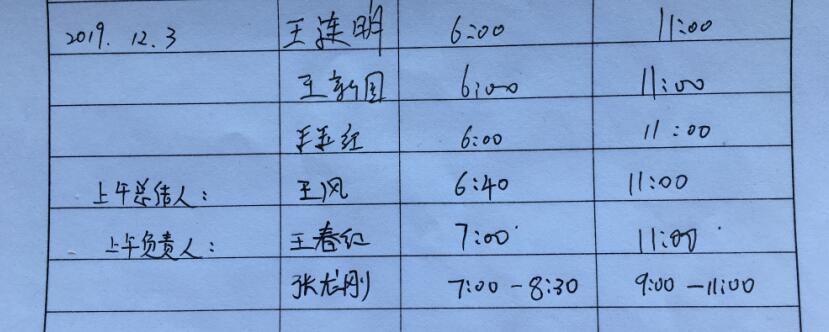 2019. 12.3 王连明 6:00 11:00
王新国 6:00 11:00
王玉红 6:00 11:00
上午总结人: 王风 6:40 11:00
上午负责人: 王春红 7:00 11:00
张尤刚 7:00-8:30 9:00-11:00